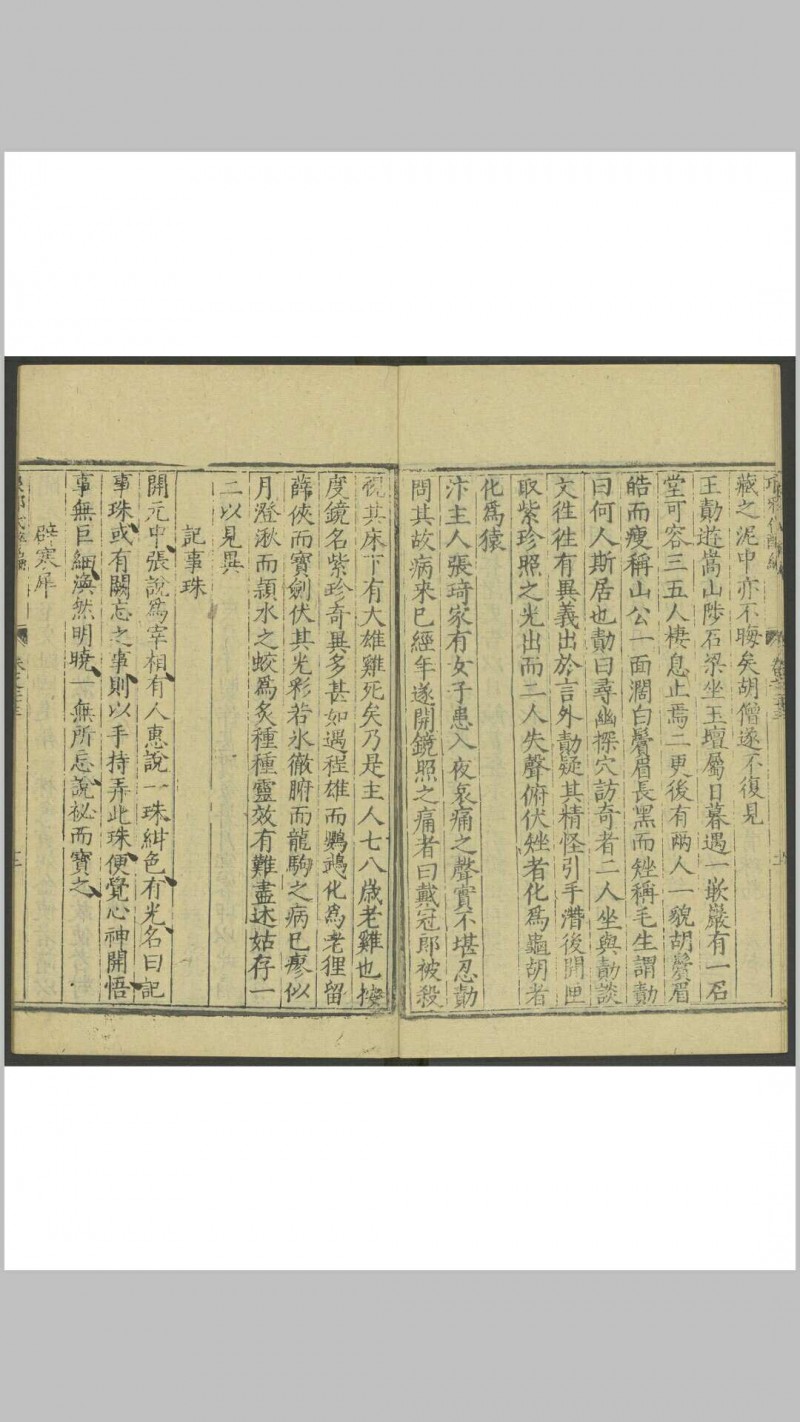 藏之泥中亦不晦矣胡僧遂不復見
王勣遊嵩山陟石梁坐玉壇屬日暮遇一嵌巖有一石
堂可容三五人棲息止焉二更後有兩人一貌胡鬢眉
皓而瘦稱山公一面濶白鬢眉長黑而矬稱毛生謂勣
曰何人斯居也勣曰尋幽探穴訪奇者二人坐與勣談
文徃徃有異義出於言外勣疑其精怪引手潛後開匣
取紫珍照之光出而二人失聲俯伏矬者化爲龜胡者
化爲猿
汴主人張琦家有女子患入夜哀痛之聲實不堪忍勣
問其故病來已經年遂開鏡照之痛者曰戴冠郎被殺
視其床下有大雄雞死矣乃是主人七八歲老雞也按
度鏡名紫珍奇異多甚如遇程雄而鸚鵡化爲老狸留
薛俠而寶劍伏其光彩若氷徹腑而龍駒之病已瘳似
月澄湫而頴水之蛟爲炙種種靈效有難盡述姑存一
二以見異
記事珠
開元中張說爲宰相有人惠說一珠紺色有光名曰記
事珠或有闕忘之事則以手持弄此珠便覺心神開悟
事無巨細渙然明曉一無所忘說祕而寶之
辟寒犀